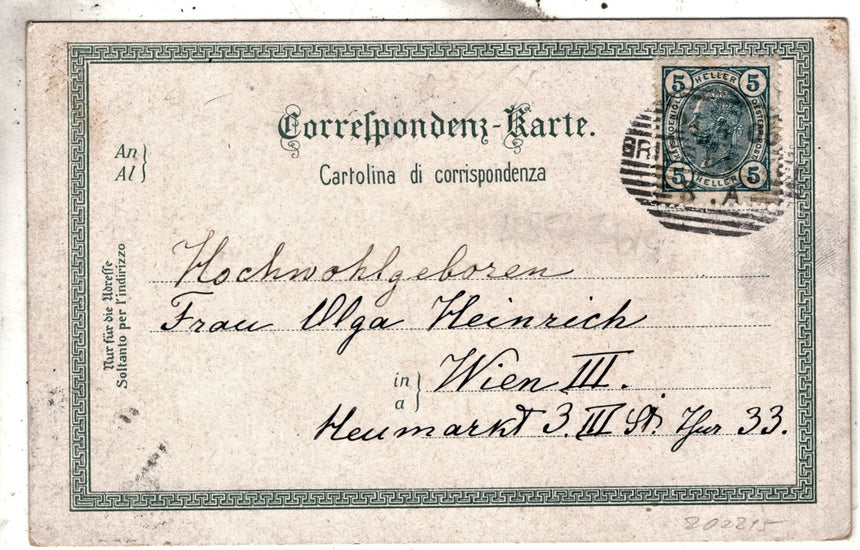 Correspondenz-Karte.
Cartolina di corrispondenza
An
Al
5 HELLER 5
5 HELLER 5
BRI
Nur für die Adresse
Soltanto per l'indirizzo
Hochwohlgeboren
Frau Olga Heinrich
in
a
Wien III.
Heumarkt 3. III St. Thür 33.
202815